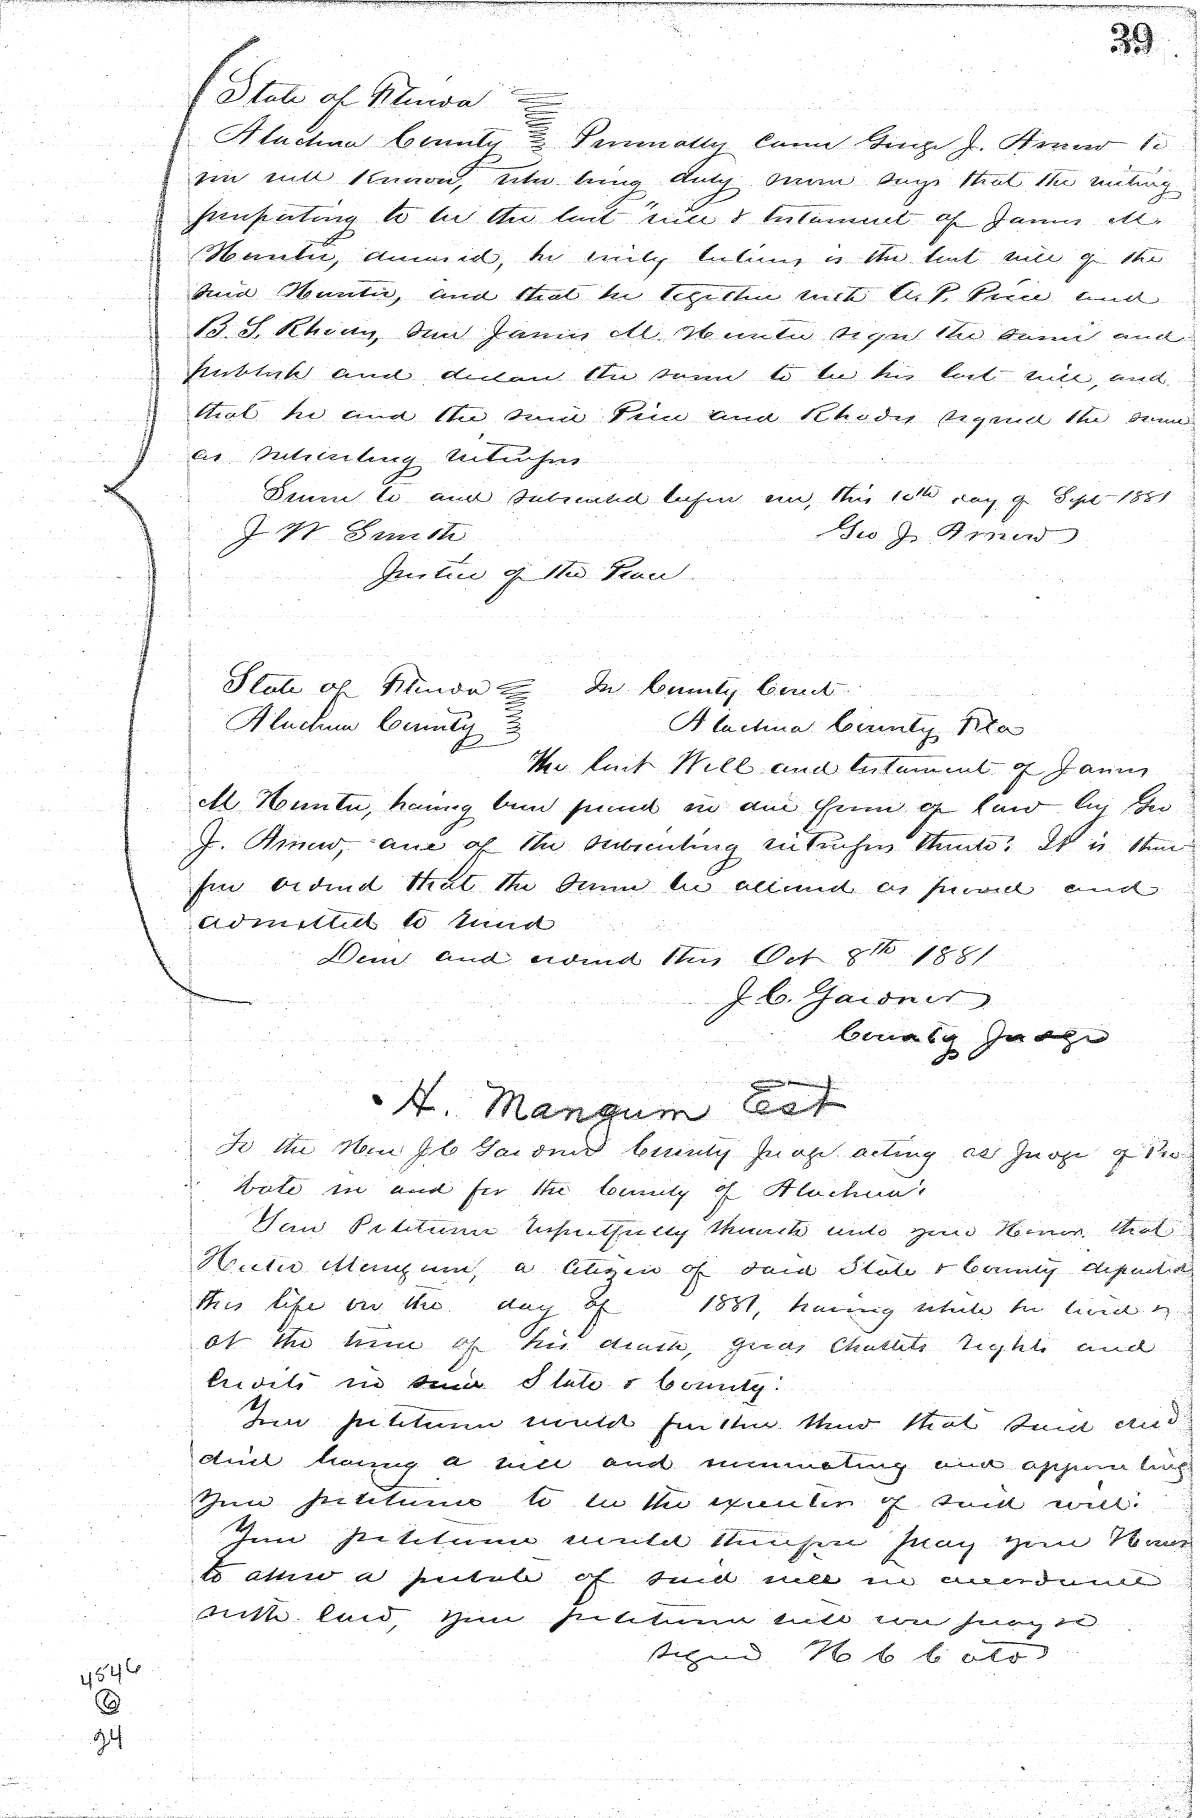 39
State of Florida
Alachua County Personally came George J. Arnow to
me well Known, who being duly sworn says that the writing
purporting to be the last will & testament of James M.
Hunter, deceased, he verily believes is the last will of the
said Hunter, and that he together with A. P. Price and
B. S. Rhodes, saw James M. Hunter sign the same and
publish and declare the same to be his last will, and
that he and the said Price and Rhodes signed the same
as subscribing witnesses
Sworn to and subscribed before me, this 10th day of Sept 1881
J W Smith Geo J. Arnow
Justice of the Peace
State of Florida In County Court
Alachua County Alachua County Fla
The last Will and testament of James
M Hunter, having been proved in due form of law by Geo
J. Arnow, one of the subscribing witnesses thereto: It is there
fore ordered that the same be allowed as proved and
admitted to record
Done and ordered this Oct 8th 1881
J. C. Gardner
County Judge
H. Mangum Est
To the Hon J C Gardner County Judge acting as Judge of Pro
bate in and for the County of Alachua:
Your Petitioner respectfully sheweth unto your Honor, that
Hector Mangum, a Citizen of said State & County departed
this life on the day of 1881, having while he lived &
at the time of his death, goods Chattels rights and
Credits in said State & County:
Your petitioner would further shew that said decd
died leaving a will and nominating and appointing
your petitioner to be the executor of said will:
Your petitioner would therefore pray your Honor
to allow a probate of said will in accordance
with law, your petitioner will ever pray &c
signed H C Cato
4546
6
94